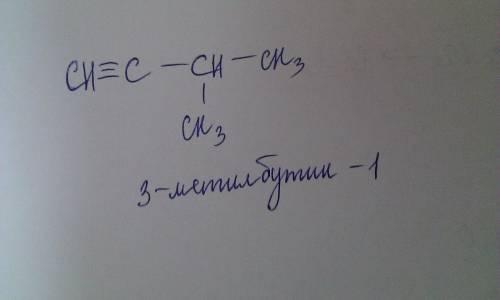 CH≡C—CH—CH₃
|
CH₃
3-метилбутин-1